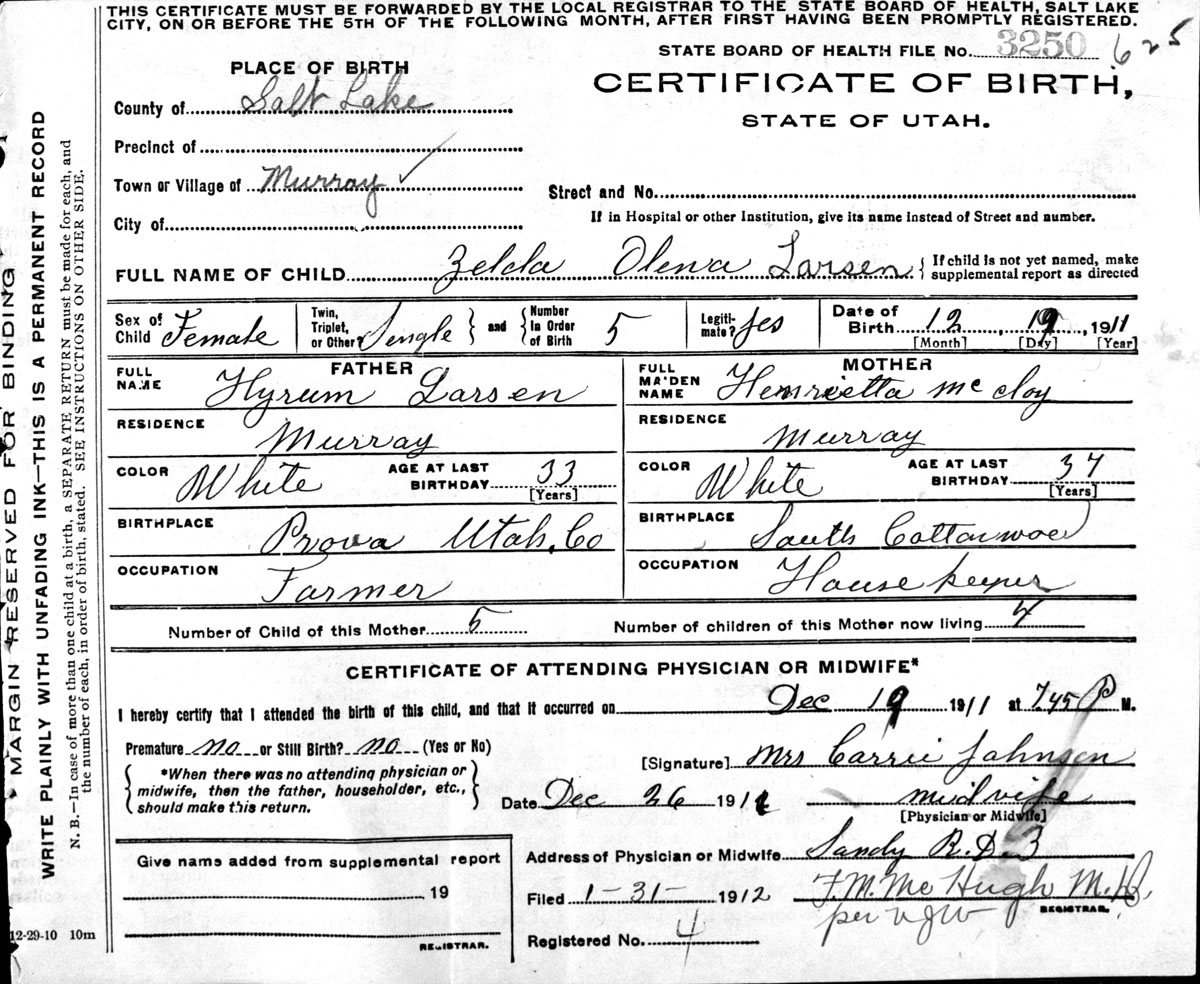 THIS CERTIFICATE MUST BE FORWARDED BY THE LOCAL REGISTRAR TO THE STATE BOARD OF HEALTH, SALT LAKE
CITY, ON OR BEFORE THE 5TH OF THE FOLLOWING MONTH, AFTER FIRST HAVING BEEN PROMPTLY REGISTERED.
STATE BOARD OF HEALTH FILE No. 3250 625
PLACE OF BIRTH
CERTIFICATE OF BIRTH,
STATE OF UTAH.
County of Salt Lake
Precinct of
Town or Village of Murray
Street and No.
City of
If in Hospital or other Institution, give its name instead of Street and number.
FULL NAME OF CHILD Zelda Olena Larsen { If child is not yet named, make
supplemental report as directed
Sex of Child Female
Twin, Triplet, or Other? Single } and { Number In Order of Birth 5
Legiti-mate? yes
Date of Birth 12, 19, 1911
[Month] [Day] [Year]
FATHER
FULL NAME Hyrum Larsen
MOTHER
FULL MAIDEN NAME Henrietta Mc Cloy
RESIDENCE Murray
RESIDENCE Murray
COLOR White AGE AT LAST BIRTHDAY 33 [Years]
COLOR White AGE AT LAST BIRTHDAY 37 [Years]
BIRTHPLACE Prova Utah, Co
BIRTHPLACE South Cottonwood
OCCUPATION Farmer
OCCUPATION House keeper
Number of Child of this Mother 5 Number of children of this Mother now living 4
CERTIFICATE OF ATTENDING PHYSICIAN OR MIDWIFE*
I hereby certify that I attended the birth of this child, and that it occurred on Dec 19 1911 at 7.45 P M.
Premature no or Still Birth? no (Yes or No)
[Signature] Mrs Carrie Johnsen
{ *When there was no attending physician or
midwife, then the father, householder, etc.,
should make this return. }
Date Dec 26 1911 midwife
[Physician or Midwife]
Give name added from supplemental report
19
REGISTRAR.
Address of Physician or Midwife Sandy R.D. 3
Filed 1-31- 1912 F.M. Mc Hugh M.D.
REGISTRAR.
per
Registered No. 4
MARGIN RESERVED FOR BINDING
WRITE PLAINLY WITH UNFADING INK—THIS IS A PERMANENT RECORD
N. B.—In case of more than one child at a birth, a SEPARATE RETURN must be made for each, and
the number of each, in order of birth, stated. SEE INSTRUCTIONS ON OTHER SIDE.
12-29-10 10m